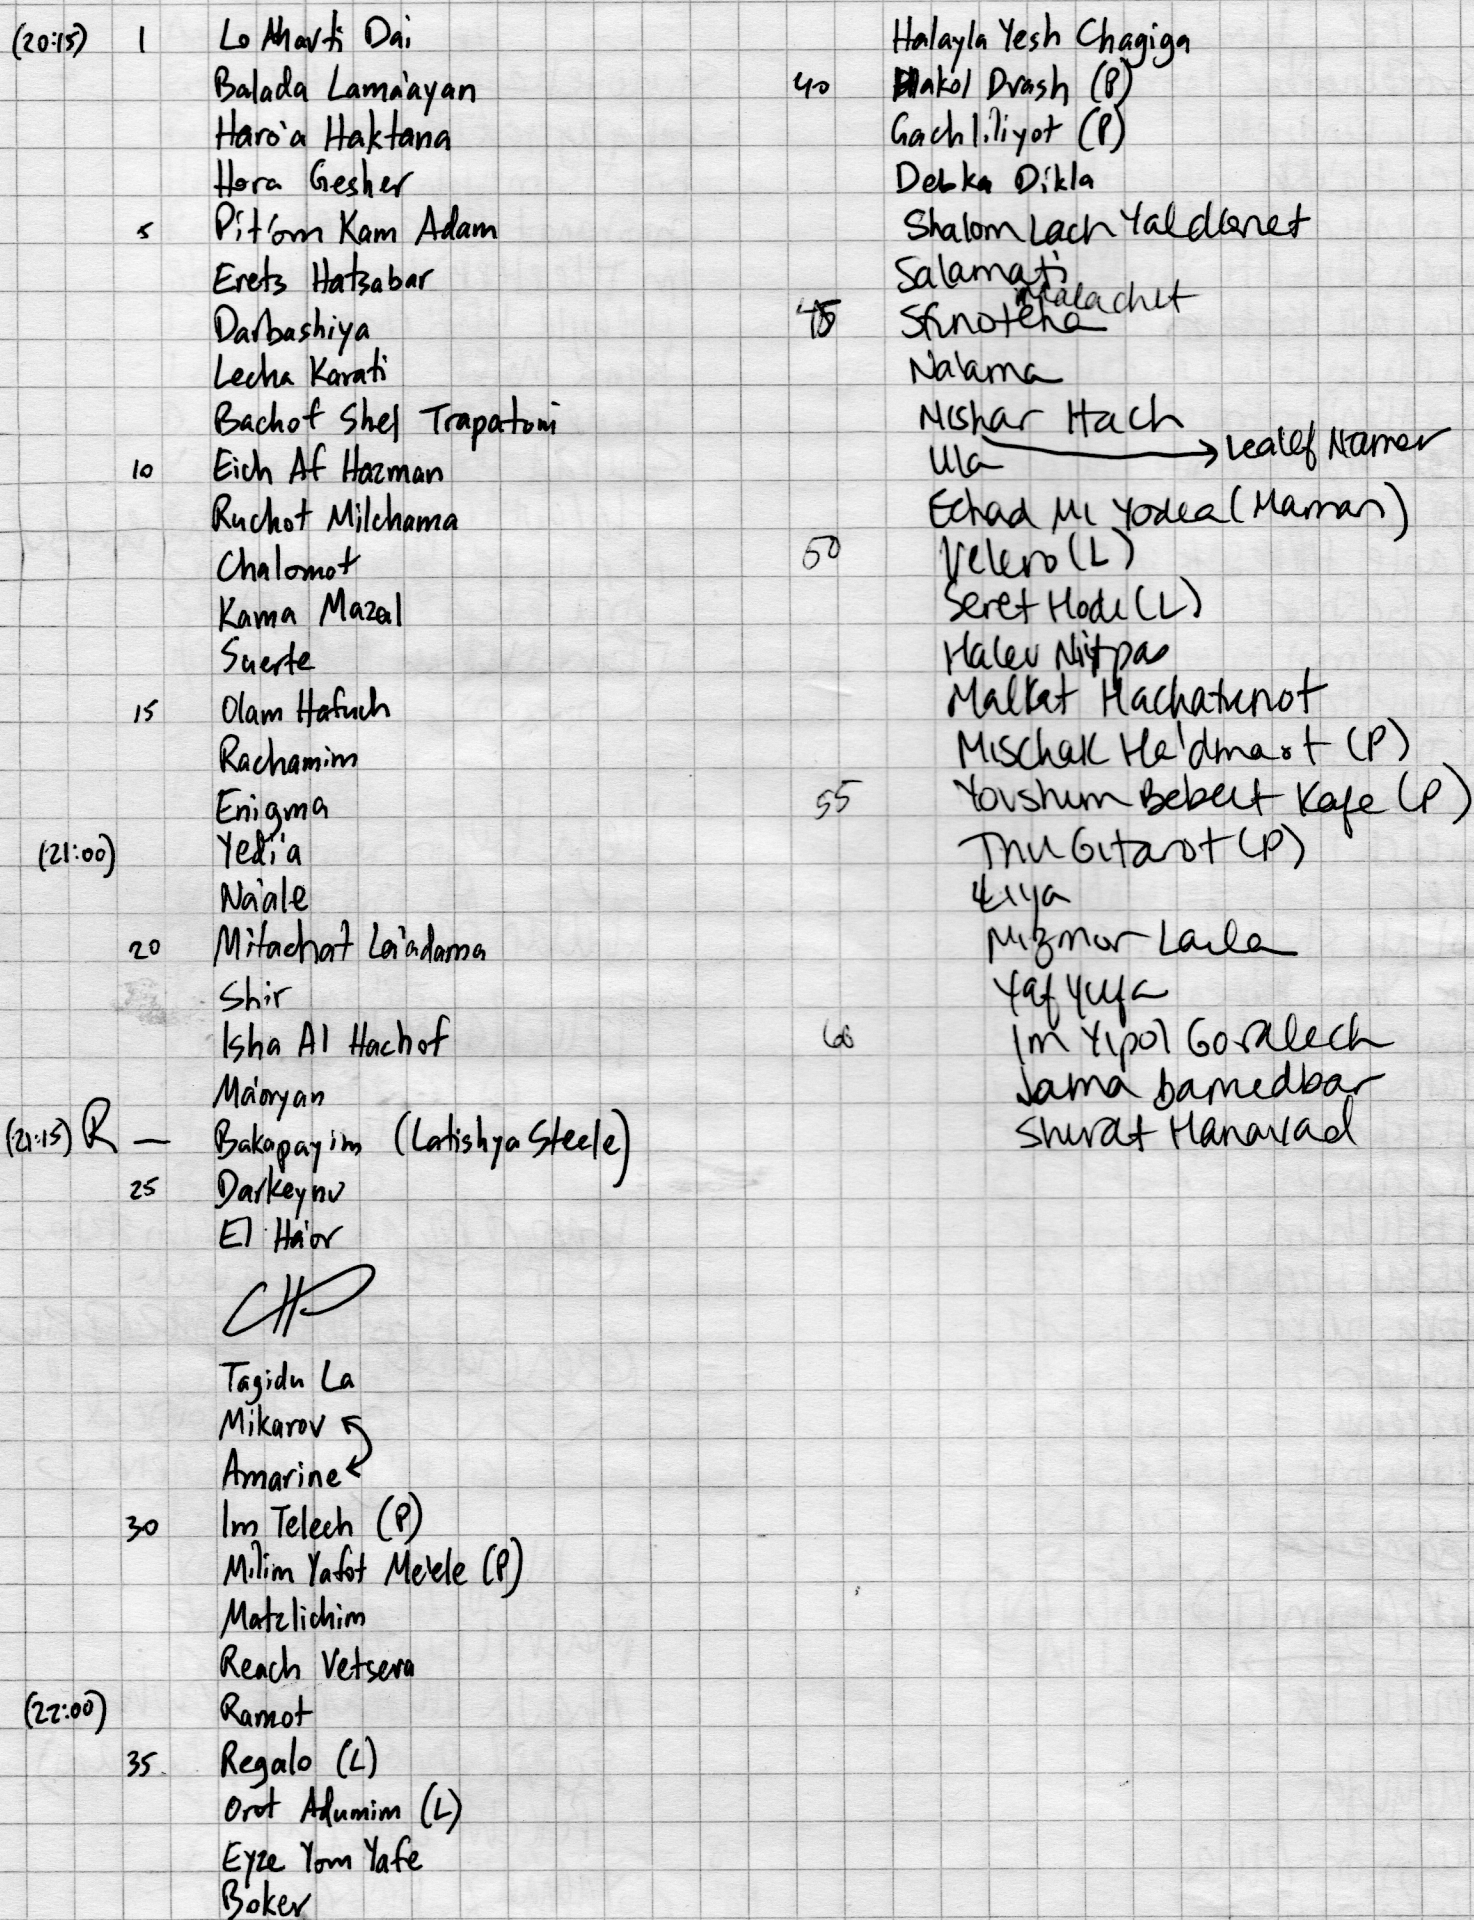 (20:15) 1 Lo Aharti Dai
Balada Lama'ayan
Haro'a Haktana
Hora Gesher
5 Pit'om Kam Adam
Erets Hatsabar
Darbashiya
Lecha Karati
Bachof Shel Trapatoni
10 Eich Af Hazman
Ruchot Milchama
Chalomot
Kama Mazal
Suerte
15 Olam Hafuch
Rachamim
Enigma
(21:00) Yedi'a
Na'ale
20 Mitachat La'adama
Shir
Isha Al Hachof
Ma'oryan
(21:15) R — Bakapayim (Latishya Steele)
25 Darkeynu
El Ha'or
Tagidu La
Mikarov
Amarine
30 Im Telech (P)
Milim Yafot Me'ele (P)
Matzlichim
Reach Vetseva
(22:00) Ramot
35 Regalo (L)
Orot Adumim (L)
Eyze Yom Yafe
Boker
Halayla Yesh Chagiga
40 Hakol Drash (P)
Gachliliyot (P)
Debka Dikla
Shalom Lach
Salamati
45
Na'ama
Mishar Hach
Ula → Lealef Namer
Echad Mi Yodea (Maman)
50 Velero (L)
Seret Hodi (L)
Halev Nitpas
Malkat Hachatunot
Mischak Ha'dma'ot (P)
55 Kafe (P)
Tnu Gitarot (P)
Mizmor Laila
Yaf Yufa
60 Im Yipol Goralech
bamedbar
Shirat Hanavad